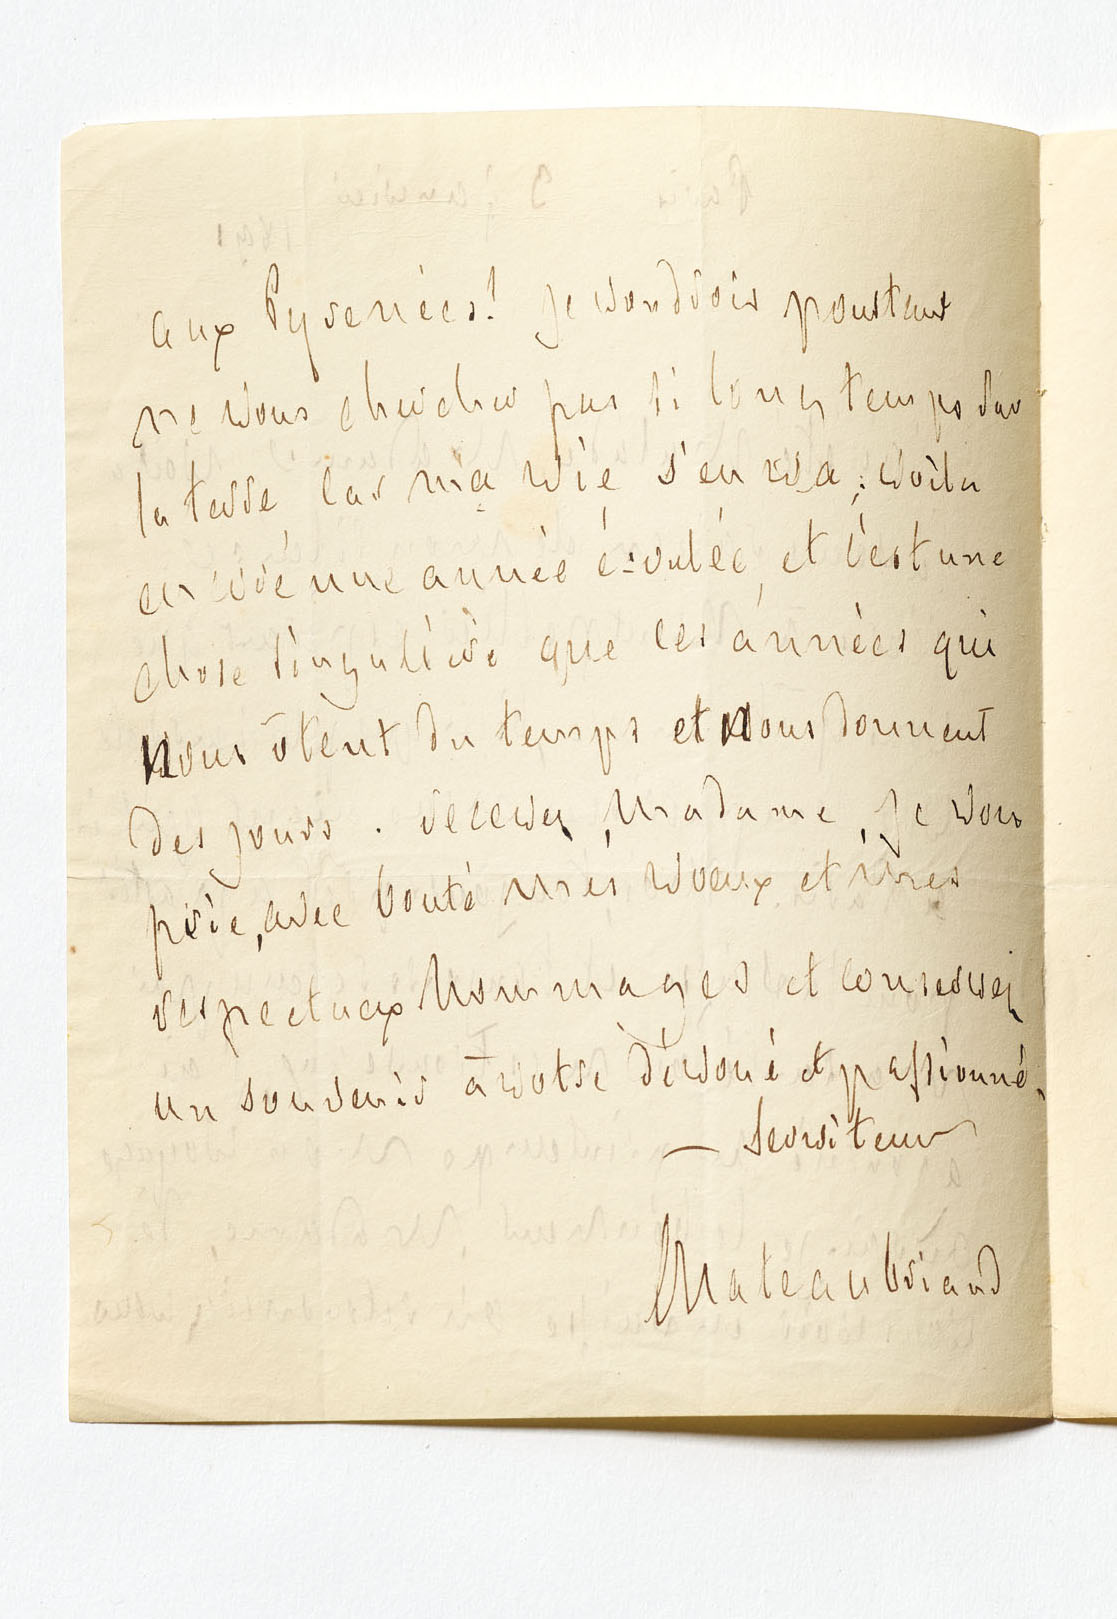 aux Pyrenées! je voudrois pourtant
ne vous chercher pas si longtemps sur
la terre, car ma vie s'en va; voila
encore une année écoulée, et c'est une
chose singulière que ces années qui
nous ôtent du temps et nous donnent
des jours. recevez, Madame, je vous
prie, avec bonté mes vœux et mes
respectueux hommages et conservez
un souvenir à votre dévoué et passionné
— serviteur
Chateaubriand